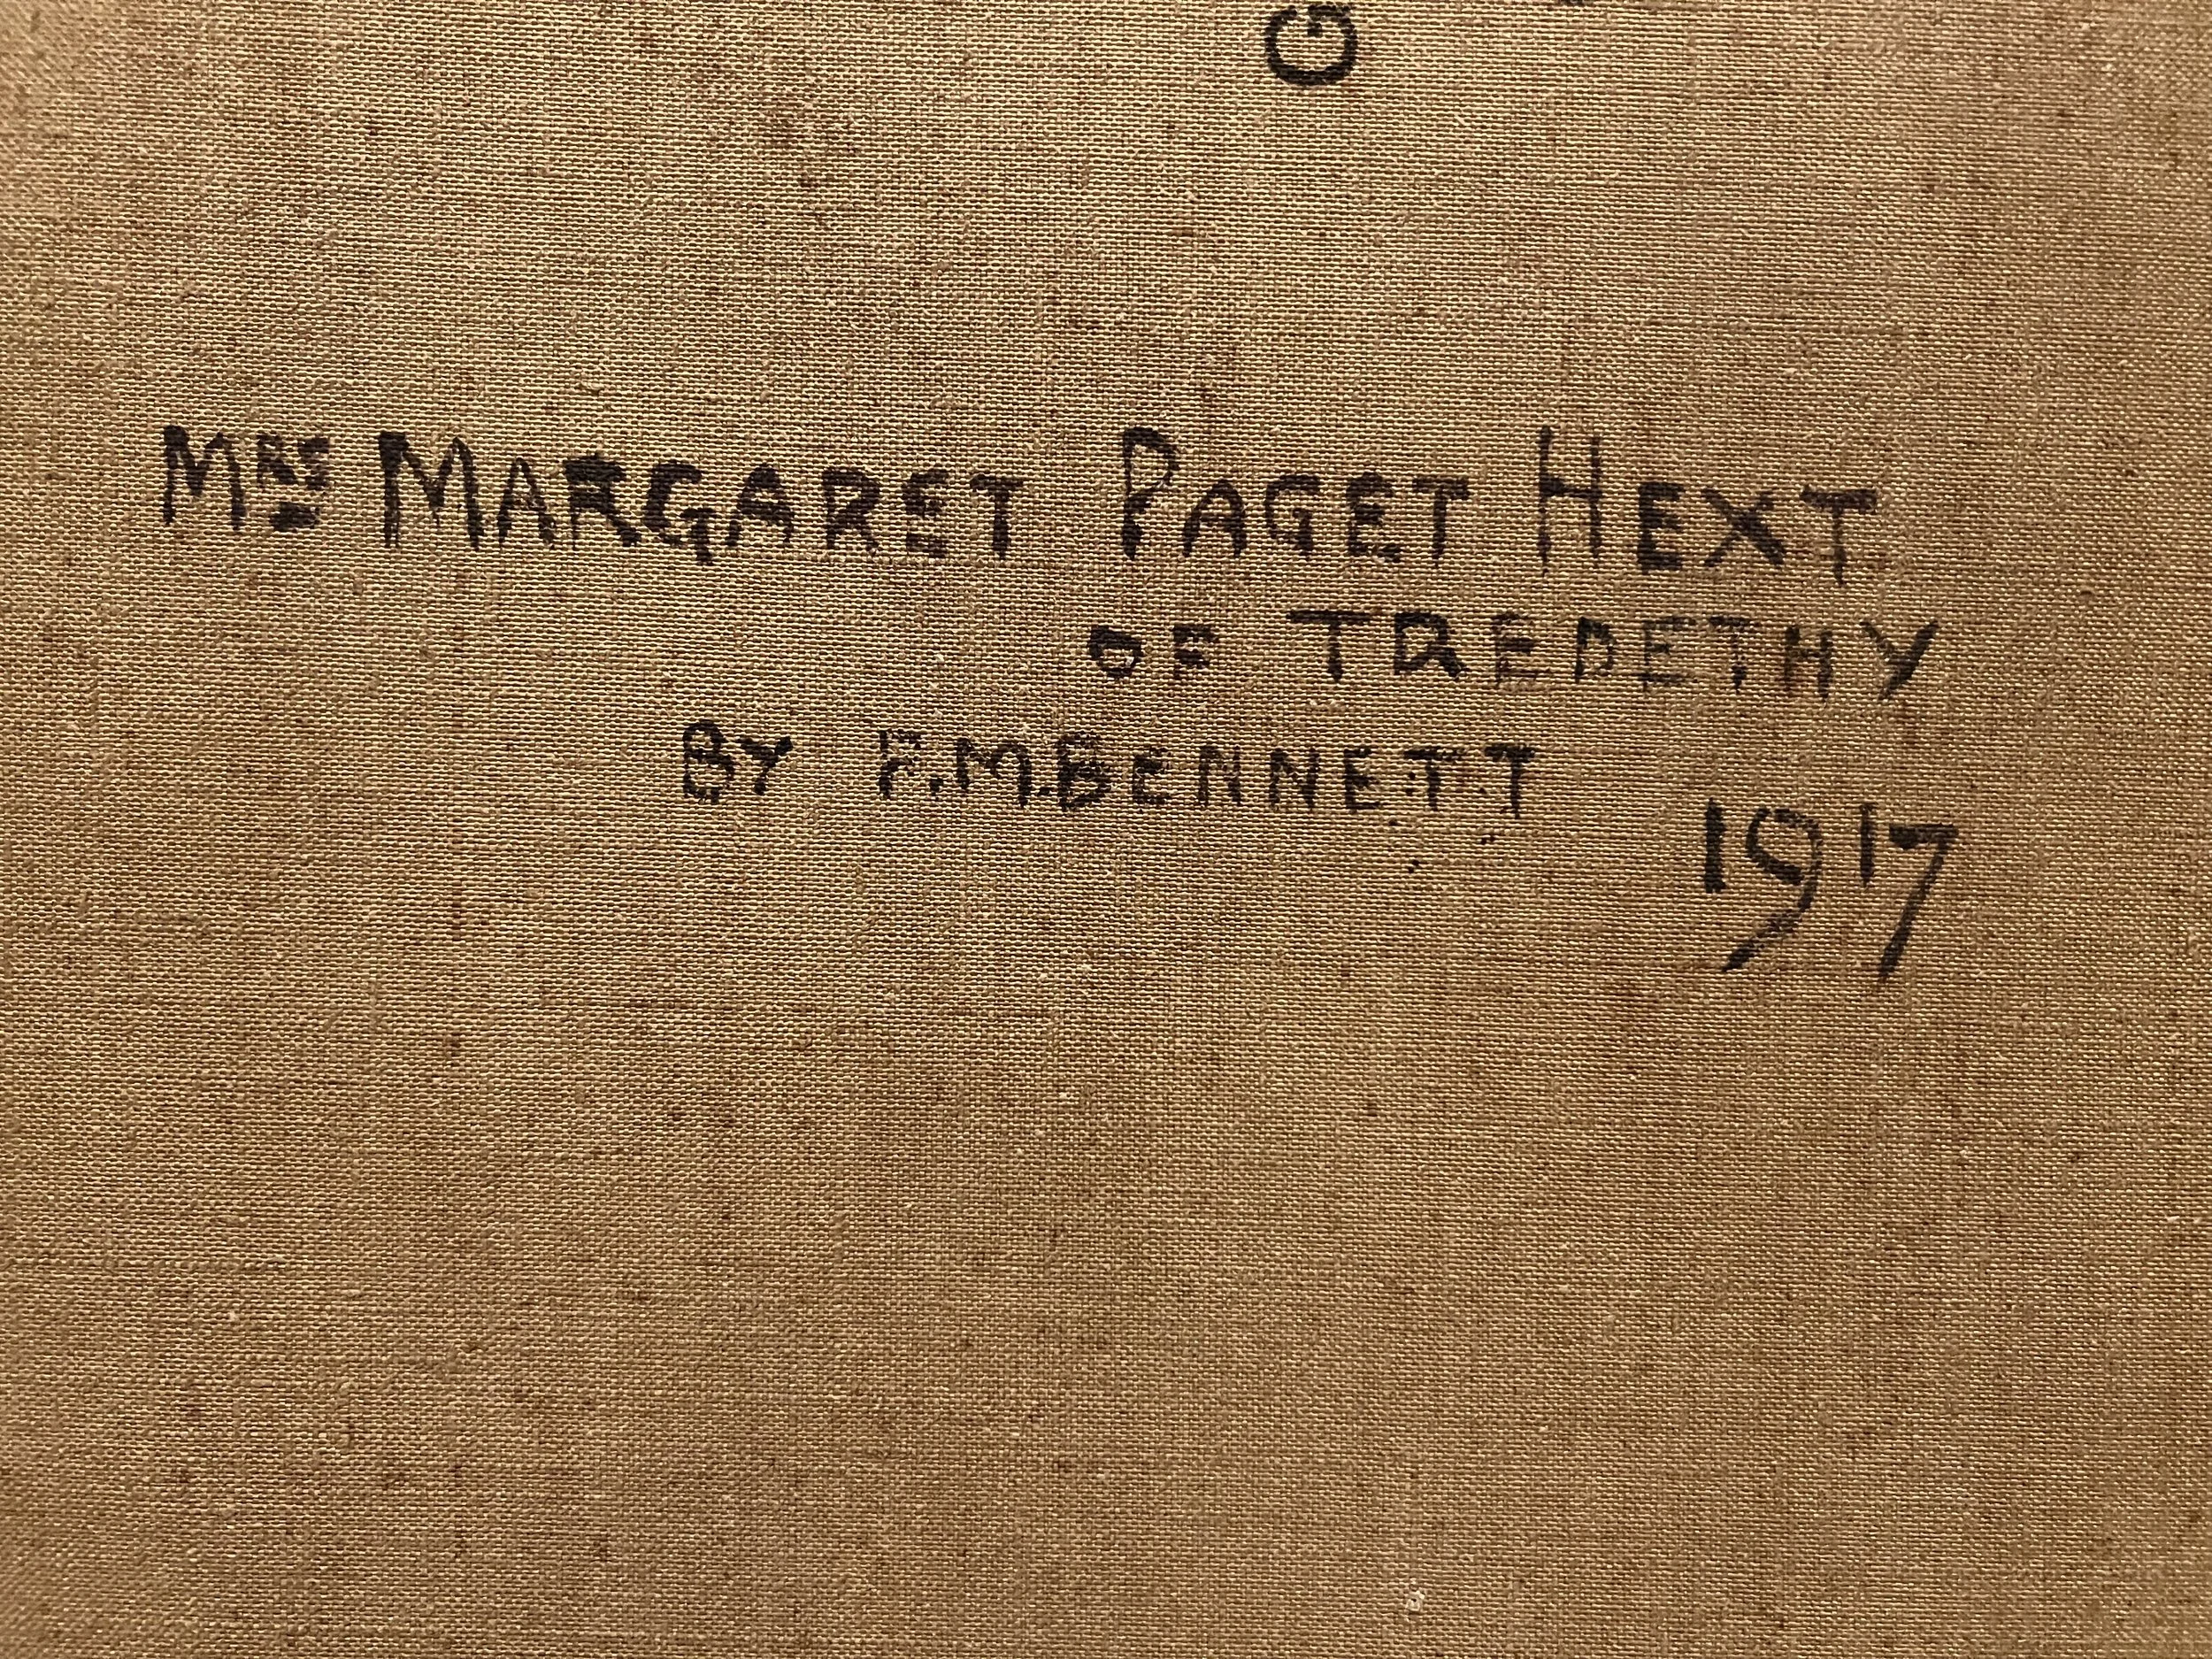 G
MRS MARGARET PAGET HEXT
OF TREDETHY
BY F.M.BENNETT
1917